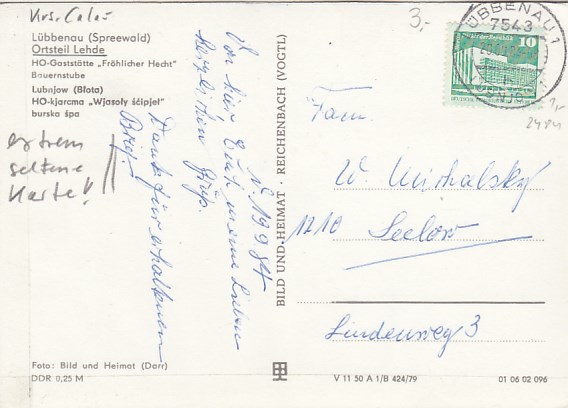 Krs. Calau
Lübbenau (Spreewald)
Ortsteil Lehde
HO-Gaststätte „Fröhlicher Hecht"
Bauernstube
Lubnjow (Błota)
HO-kjarcma „Wjasoły šćipjel"
burska śpa
extrem
seltene
Karte!
19 9 84
Von hier Euch meine Lieben
herzlichen Gruß.
Dank für erhaltenen
Brief.
Foto: Bild und Heimat (Darr)
DDR 0,25 M
BILD UND HEIMAT · REICHENBACH (VOGTL)
3,-
LÜBBENAU 1
7543
10
Fam.
W. Michalsky
1210
Seelow
Lindenweg 3
V 11 50 A 1/B 424/79
01 06 02 096